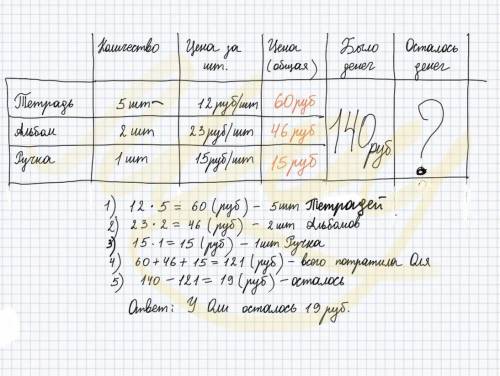 Количество Цена за шт. Цена (общая) Было денег Осталось денег
Тетрадь 5 шт 12 руб/шт 60 руб 140 руб. ?
Альбом 2 шт 23 руб/шт 46 руб
Ручка 1 шт 15 руб/шт 15 руб
1) 12 · 5 = 60 (руб) - 5 шт Тетрадей
2) 23 · 2 = 46 (руб) - 2 шт Альбомов
3) 15 · 1 = 15 (руб) - 1 шт Ручка
4) 60 + 46 + 15 = 121 (руб) - всего потратила Оля
5) 140 - 121 = 19 (руб) - осталось
Ответ: У Оли осталось 19 руб.